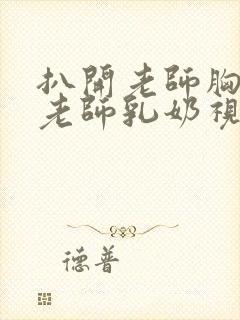 扒開老師胸
老師乳奶視
德普